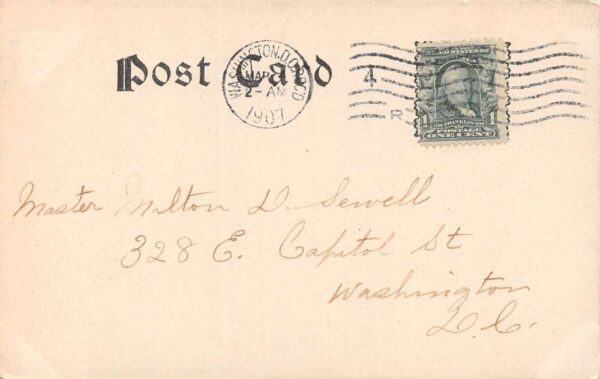 Post Card
WASHINGTON, D.C.
MAR
2-AM
1907
4
R
1 FRANKLIN 1
POSTAGE
ONE CENT
Master Milton D. Sewell
328 E. Capitol St
Washington
D.C.